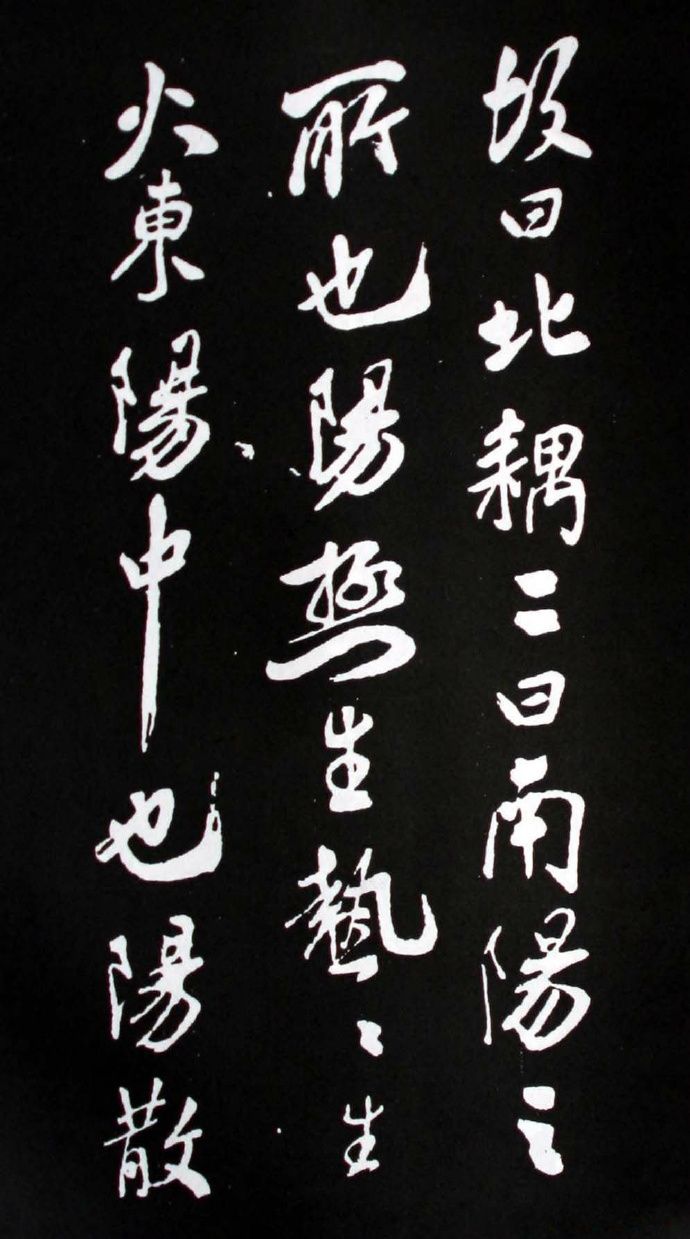 故曰北耦二曰南陽之
所也陽極生熱〻生
火東陽中也陽散